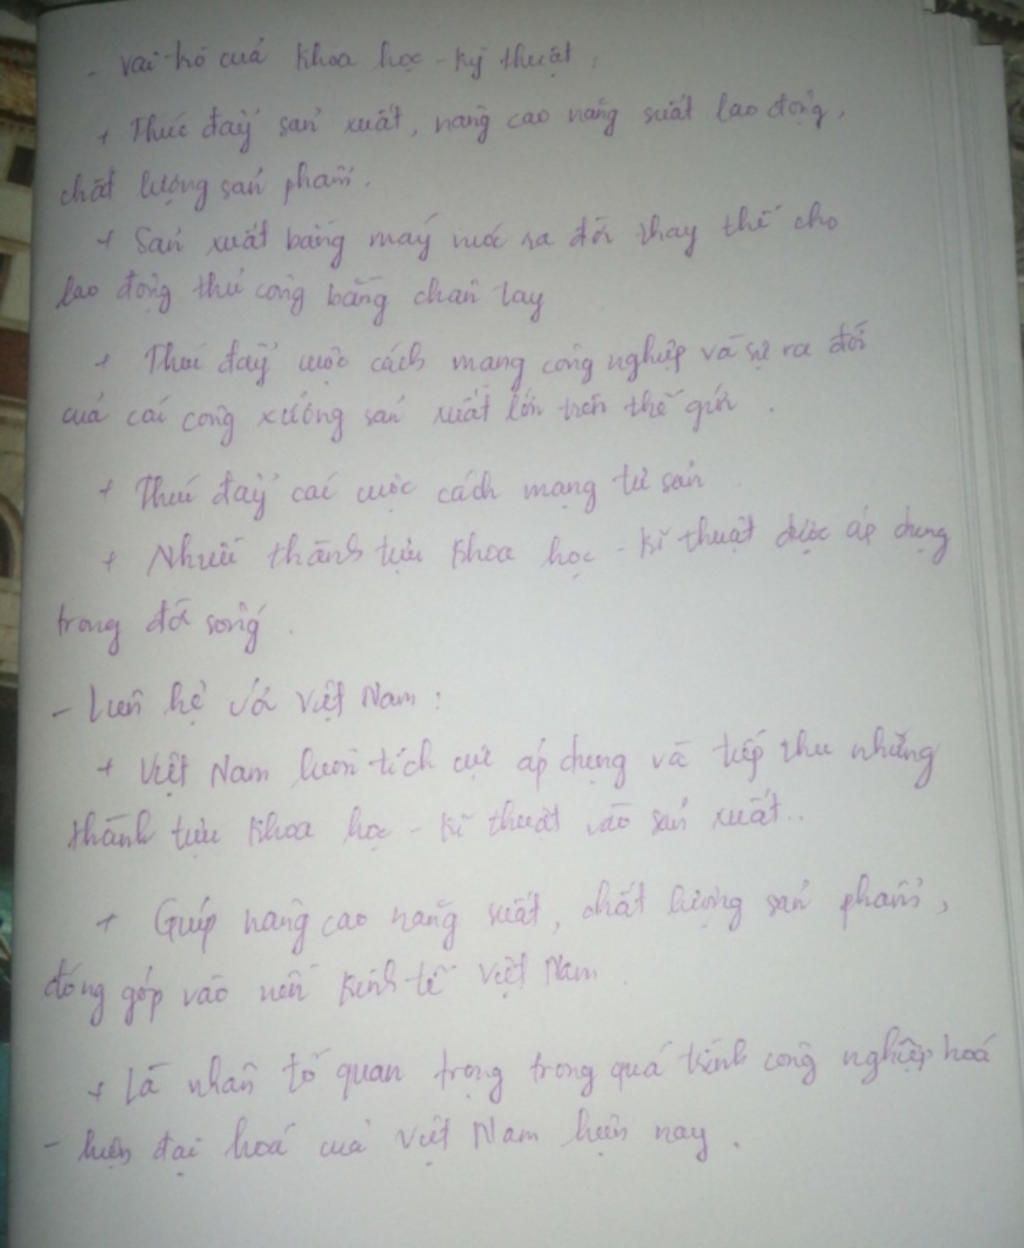 - Vai trò của khoa học - kỹ thuật :
+ Thúc đẩy sản xuất, nâng cao năng suất lao động,
chất lượng sản phẩm.
+ Sản xuất bằng máy móc ra đời thay thế cho
lao động thủ công bằng chân tay
+ Thúc đẩy cuộc cách mạng công nghiệp và sự ra đời
của các công xưởng sản xuất lớn trên thế giới .
+ Thúc đẩy các cuộc cách mạng tư sản
+ Nhiều thành tựu khoa học - kĩ thuật được áp dụng
trong đời sống .
- Liên hệ với Việt Nam :
+ Việt Nam luôn tích cực áp dụng và tiếp thu những
thành tựu khoa học - kĩ thuật vào sản xuất..
+ Giúp nâng cao năng suất, chất lượng sản phẩm,
đóng góp vào nền kinh tế Việt Nam .
+ Là nhân tố quan trọng trong quá trình công nghiệp hoá
- hiện đại hoá của Việt Nam hiện nay .